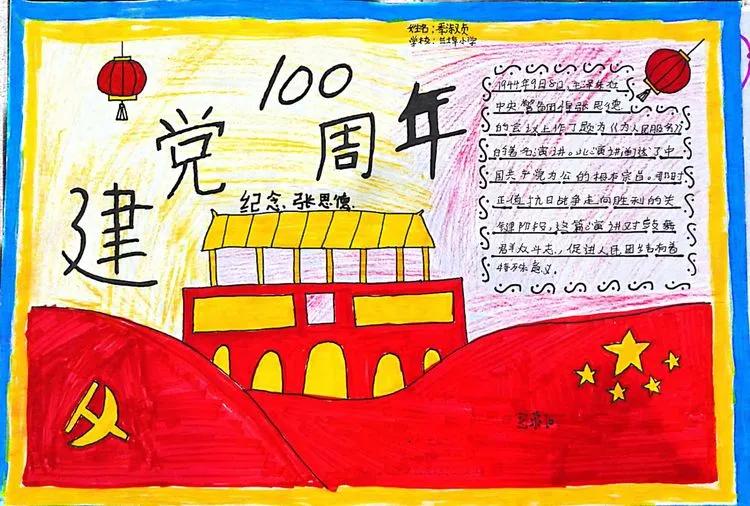 姓名:秦淑贞
学校:兰埠小学
建党100周年
纪念.张思德.
1944年9月8日,毛泽东在
中央警备团追悼张思德
的会议上作了题为《为人民服务》
的著名演讲。此演讲阐述了中
国共产党为公的根本宗旨。那时
正值抗日战争走向胜利的关
键阶段,这篇演讲对鼓舞
群众斗志,促进人民团结有着
特殊意义。